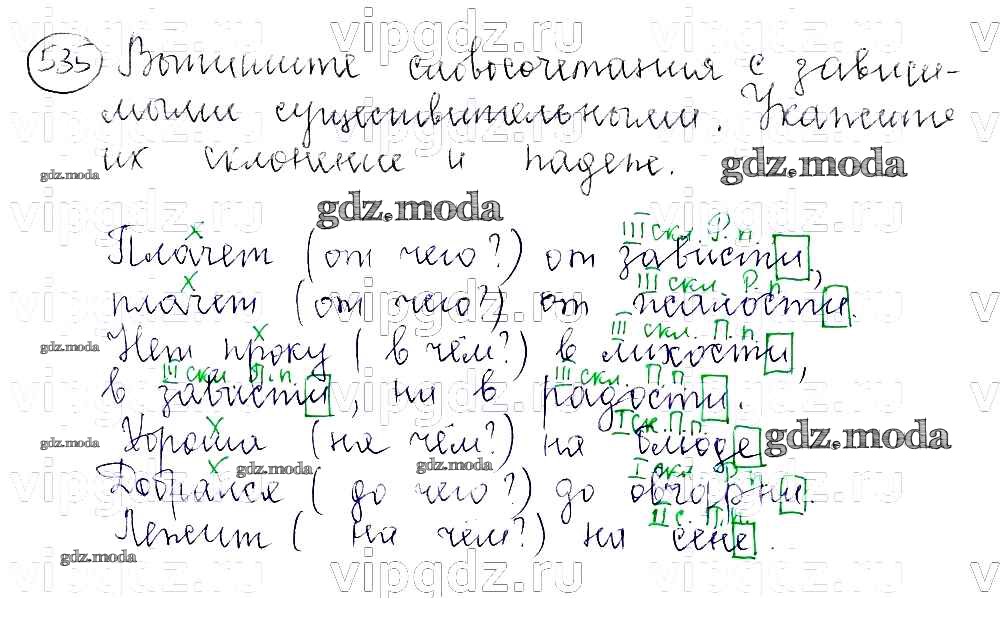 535 Выпишите словосочетания с зависи-
мыми существительными. Укажите
их склонение и падеж.
gdz.moda
gdz.moda
gdz.moda
III скл. Р.п.
Плачет (от чего?) от зависти,
III скл. Р.п.
плачет (от чего?) от жалости.
III скл. П.п.
Нет проку (в чём?) в лихости,
gdz.moda
III скл. П.п. III скл. П.п.
в зависти, ни в радости.
I ск. П.п.
Хороша (на чём?) на блюде
gdz.moda
gdz.moda
gdz.moda
gdz.moda
I скл.
Добрался (до чего?) до овчарни.
II с. П.п.
Лежит (на чём?) на сене.
gdz.moda
vipgdz.ru